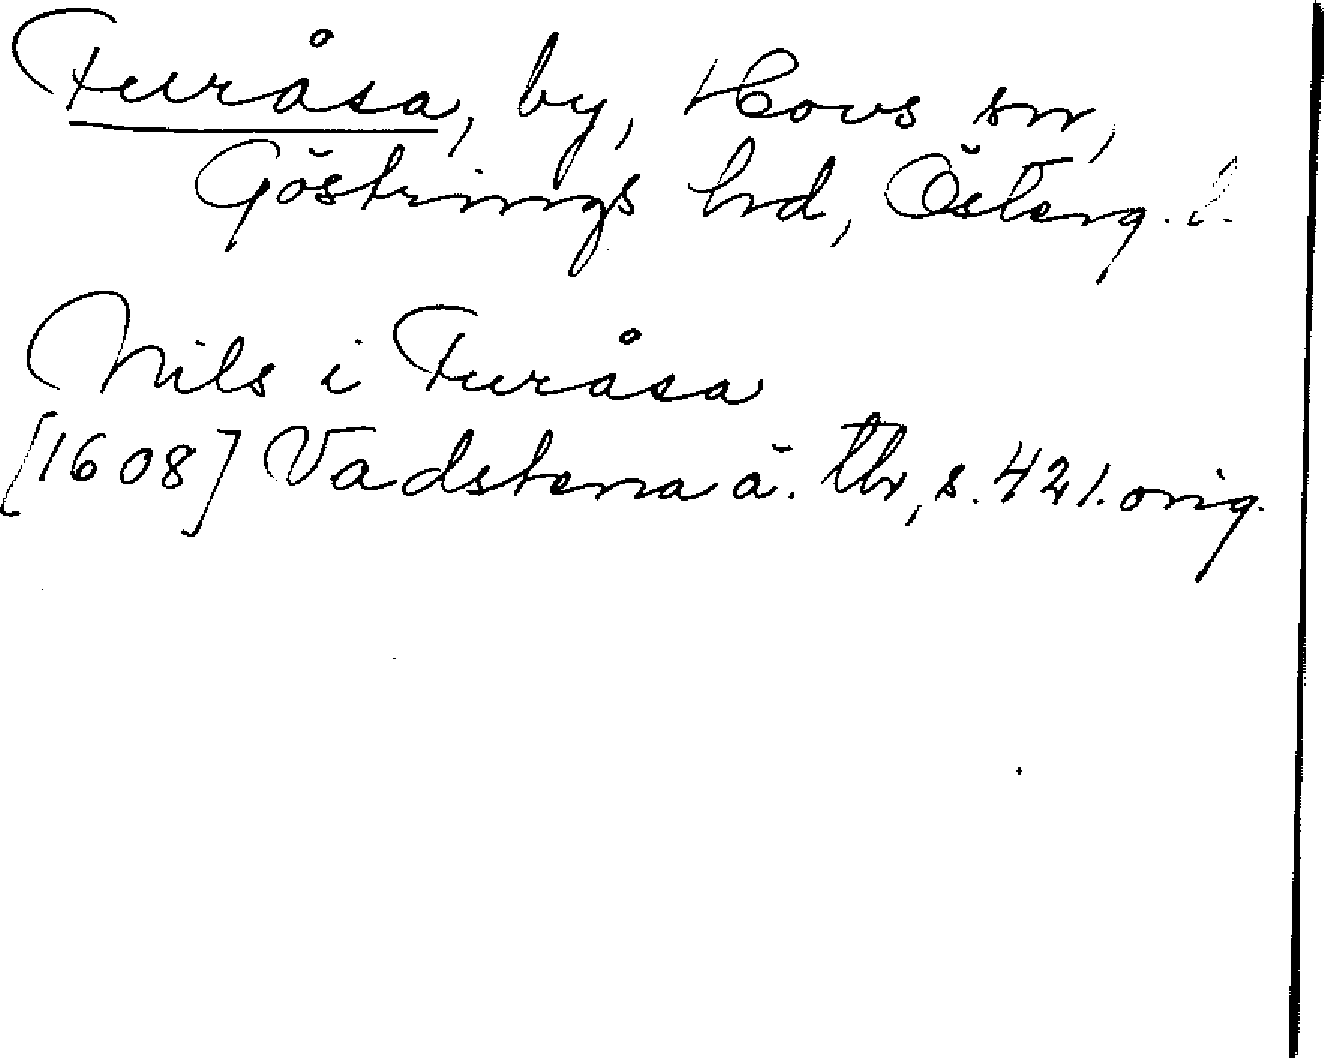 Furåsa, by, Hovs sn,
Göstrings hrd, Österg. l.
Nils i Furåsa
[1608] Vadstena ä. tb, s. 421. orig.